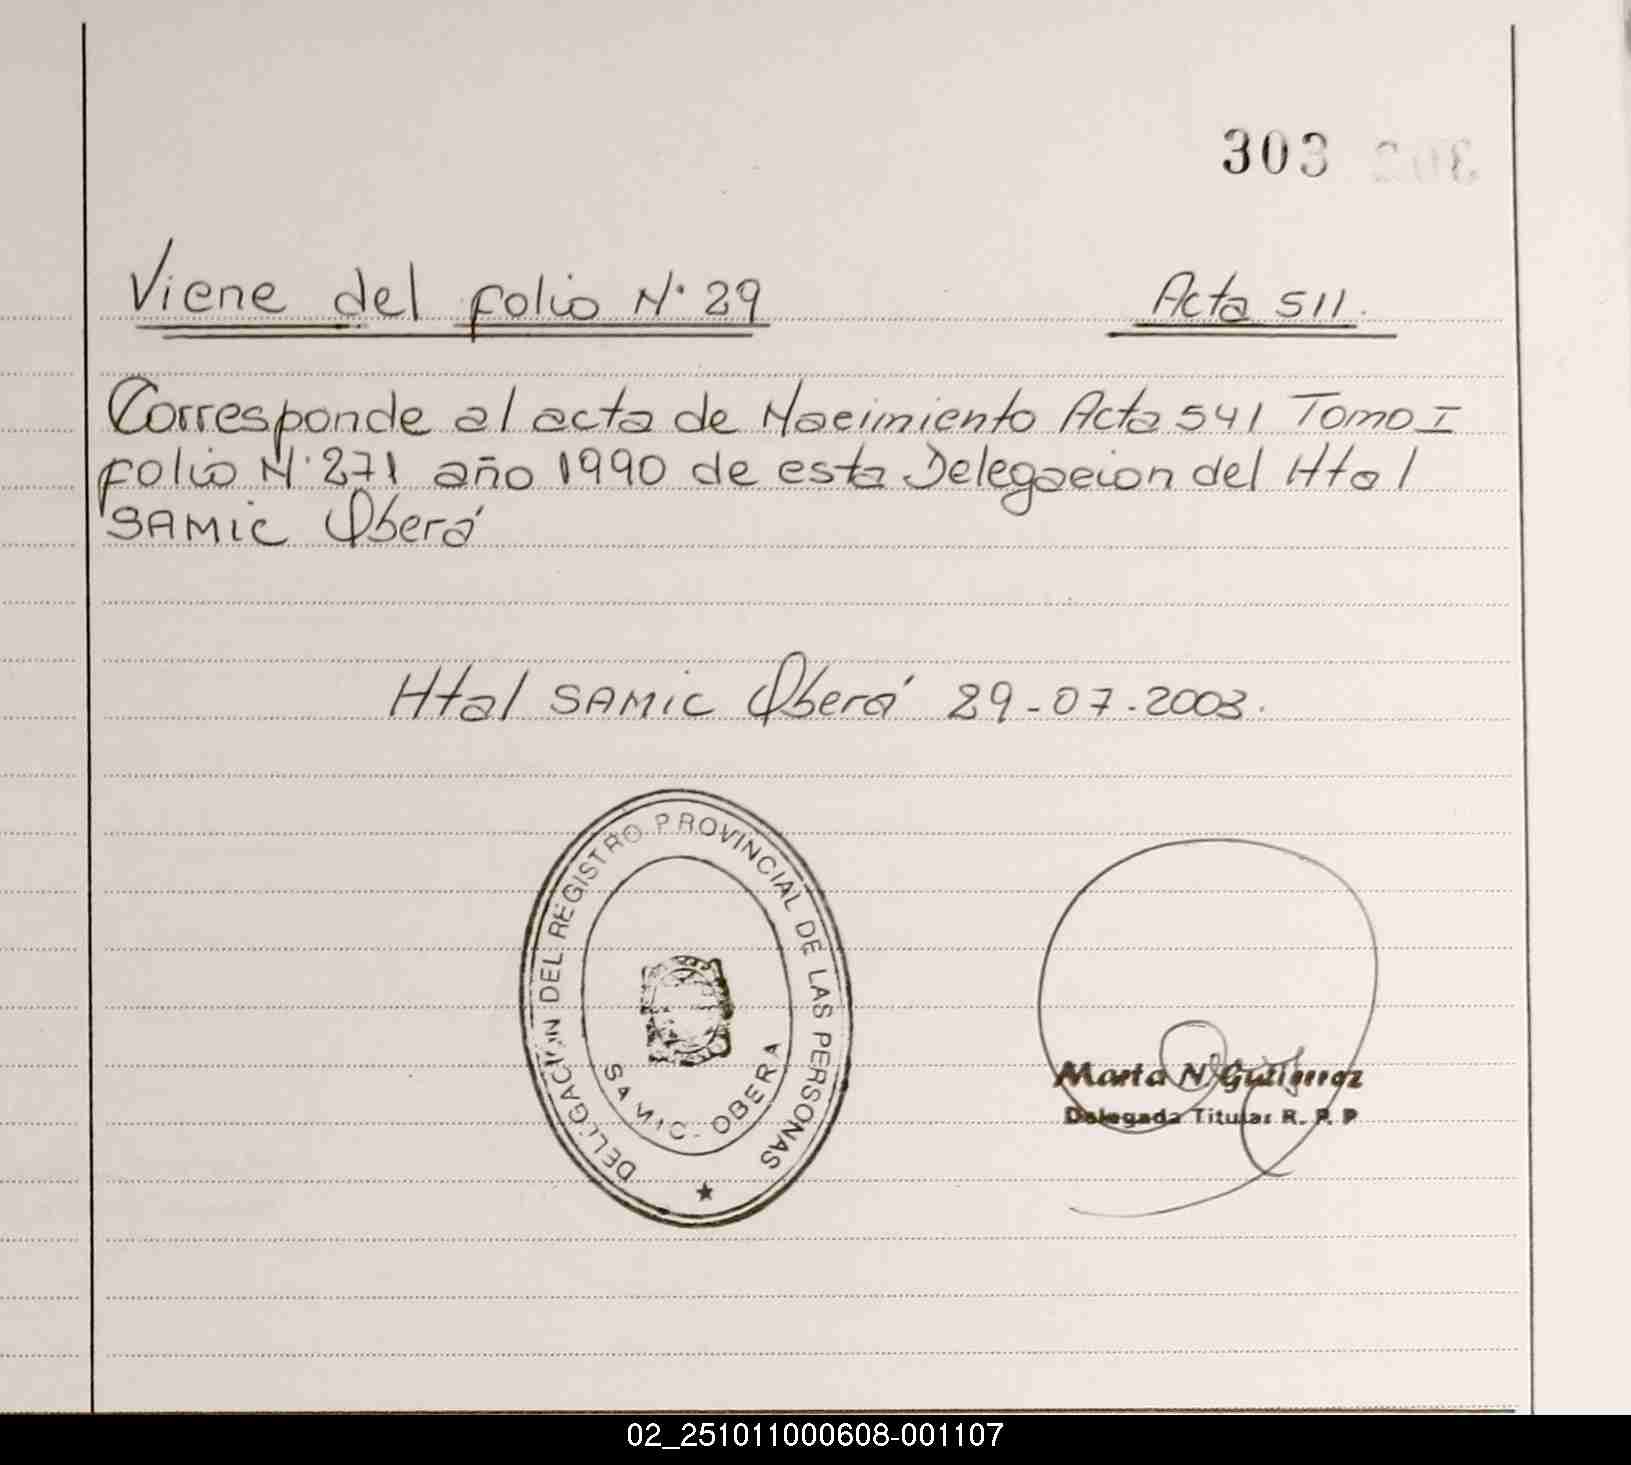 303
Viene del folio N° 29 Acta 511.
Corresponde al acta de Nacimiento Acta 541 Tomo I
folio N° 271 año 1990 de esta Delegacion del Htal
SAMIC Oberá
Htal SAMIC Oberá 29-07-2003.
DELEGACION DEL REGISTRO PROVINCIAL DE LAS PERSONAS
SAMIC - OBERA
Marta N. Gutierrez
Delegada Titular R. P. P
02_251011000608-001107